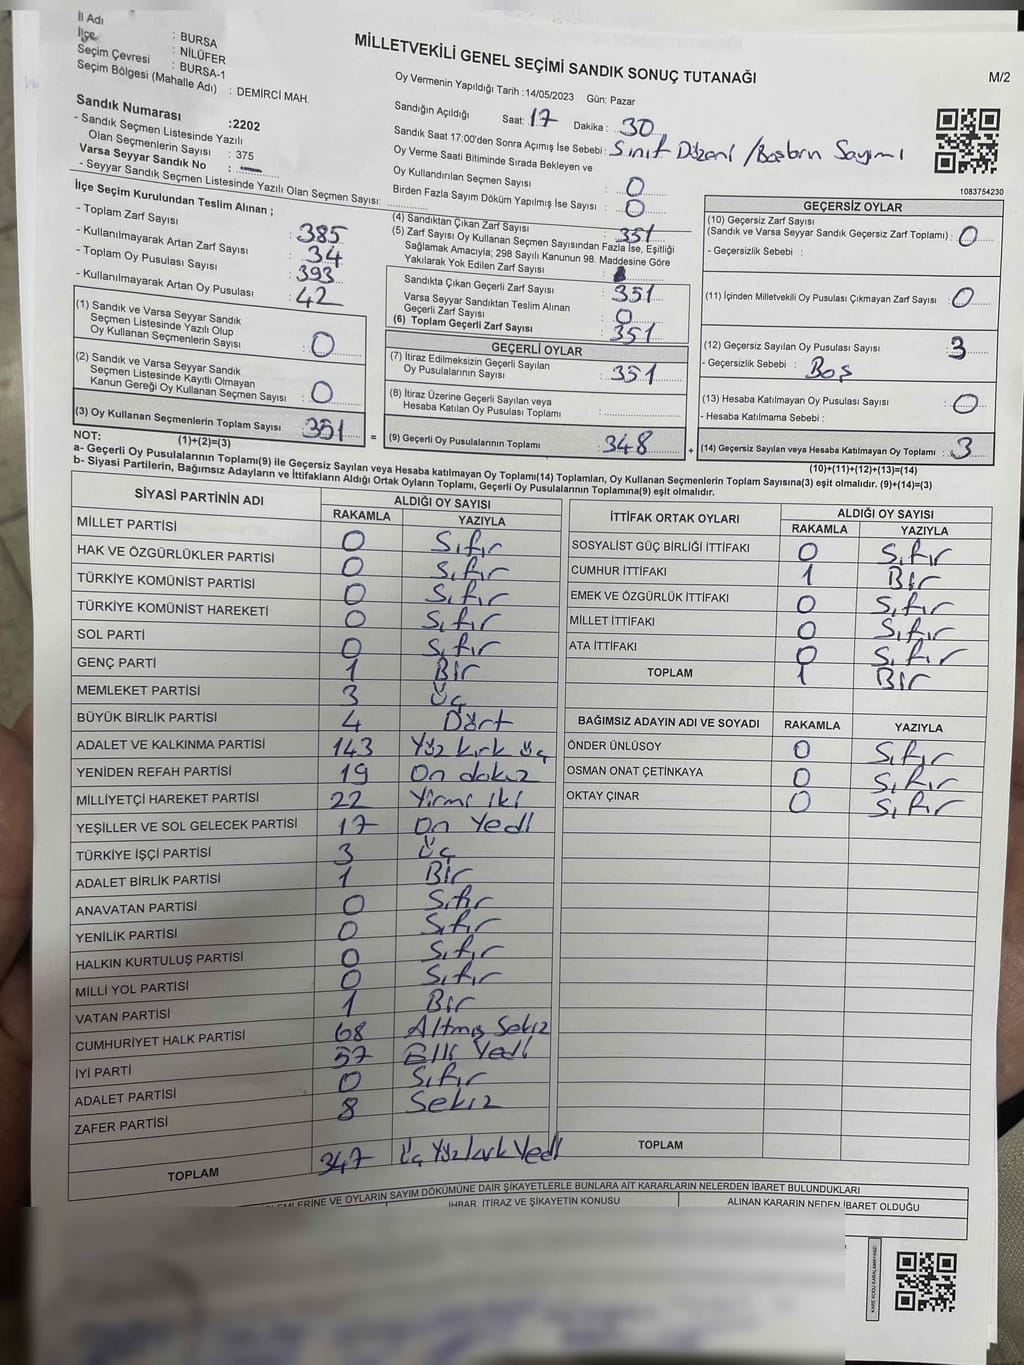 İl Adı : BURSA
İlçe : NİLÜFER
Seçim Çevresi : BURSA-1
Seçim Bölgesi (Mahalle Adı) : DEMİRCİ MAH.
MİLLETVEKİLİ GENEL SEÇİMİ SANDIK SONUÇ TUTANAĞI
M/2
Sandık Numarası :2202
- Sandık Seçmen Listesinde Yazılı
Olan Seçmenlerin Sayısı : 375
Varsa Seyyar Sandık No : —
- Seyyar Sandık Seçmen Listesinde Yazılı Olan Seçmen Sayısı:
Oy Vermenin Yapıldığı Tarih :14/05/2023 Gün: Pazar
Sandığın Açıldığı Saat: 17 Dakika : 30
Sandık Saat 17:00'den Sonra Açımış İse Sebebi : Sınıf Düzeni / Basların Sayımı
Oy Verme Saati Bitiminde Sırada Bekleyen ve
Oy Kullandırılan Seçmen Sayısı : 0
Birden Fazla Sayım Döküm Yapılmış İse Sayısı : 0
1083754230
İlçe Seçim Kurulundan Teslim Alınan ;
- Toplam Zarf Sayısı : 385
- Kullanılmayarak Artan Zarf Sayısı : 34
- Toplam Oy Pusulası Sayısı : 393
- Kullanılmayarak Artan Oy Pusulası : 42
(1) Sandık ve Varsa Seyyar Sandık
Seçmen Listesinde Yazılı Olup
Oy Kullanan Seçmenlerin Sayısı : 0
(2) Sandık ve Varsa Seyyar Sandık
Seçmen Listesinde Kayıtlı Olmayan
Kanun Gereği Oy Kullanan Seçmen Sayısı : 0
(3) Oy Kullanan Seçmenlerin Toplam Sayısı : 351
(1)+(2)=(3)
(4) Sandıktan Çıkan Zarf Sayısı : 351
(5) Zarf Sayısı Oy Kullanan Seçmen Sayısından Fazla İse, Eşitliği
Sağlamak Amacıyla; 298 Sayılı Kanunun 98. Maddesine Göre
Yakılarak Yok Edilen Zarf Sayısı :
Sandıkta Çıkan Geçerli Zarf Sayısı : 351
Varsa Seyyar Sandıktan Teslim Alınan
Geçerli Zarf Sayısı : 0
(6) Toplam Geçerli Zarf Sayısı : 351
GEÇERLİ OYLAR
(7) İtiraz Edilmeksizin Geçerli Sayılan
Oy Pusulalarının Sayısı : 351
(8) İtiraz Üzerine Geçerli Sayılan veya
Hesaba Katılan Oy Pusulası Toplamı :
= (9) Geçerli Oy Pusulalarının Toplamı : 348
GEÇERSİZ OYLAR
(10) Geçersiz Zarf Sayısı
(Sandık ve Varsa Seyyar Sandık Geçersiz Zarf Toplamı) : 0
- Geçersizlik Sebebi :
(11) İçinden Milletvekili Oy Pusulası Çıkmayan Zarf Sayısı : 0
(12) Geçersiz Sayılan Oy Pusulası Sayısı : 3
- Geçersizlik Sebebi : Boş
(13) Hesaba Katılmayan Oy Pusulası Sayısı : 0
- Hesaba Katılmama Sebebi :
+ (14) Geçersiz Sayılan veya Hesaba Katılmayan Oy Toplamı : 3
(10)+(11)+(12)+(13)=(14)
NOT:
a- Geçerli Oy Pusulalarının Toplamı(9) ile Geçersiz Sayılan veya Hesaba katılmayan Oy Toplamı(14) Toplamları, Oy Kullanan Seçmenlerin Toplam Sayısına(3) eşit olmalıdır. (9)+(14)=(3)
b- Siyasi Partilerin, Bağımsız Adayların ve İttifakların Aldığı Ortak Oyların Toplamı, Geçerli Oy Pusulalarının Toplamına(9) eşit olmalıdır.
SİYASİ PARTİNİN ADI ALDIĞI OY SAYISI
RAKAMLA YAZIYLA
MİLLET PARTİSİ 0 Sıfır
HAK VE ÖZGÜRLÜKLER PARTİSİ 0 Sıfır
TÜRKİYE KOMÜNİST PARTİSİ 0 Sıfır
TÜRKİYE KOMÜNİST HAREKETİ 0 Sıfır
SOL PARTİ 0 Sıfır
GENÇ PARTİ 1 Bir
MEMLEKET PARTİSİ 3 Üç
BÜYÜK BİRLİK PARTİSİ 4 Dört
ADALET VE KALKINMA PARTİSİ 143 Yüz kırk üç
YENİDEN REFAH PARTİSİ 19 On dokuz
MİLLİYETÇİ HAREKET PARTİSİ 22 Yirmi iki
YEŞİLLER VE SOL GELECEK PARTİSİ 17 On Yedi
TÜRKİYE İŞÇİ PARTİSİ 3 Üç
ADALET BİRLİK PARTİSİ 1 Bir
ANAVATAN PARTİSİ 0 Sıfır
YENİLİK PARTİSİ 0 Sıfır
HALKIN KURTULUŞ PARTİSİ 0 Sıfır
MİLLİ YOL PARTİSİ 0 Sıfır
VATAN PARTİSİ 1 Bir
CUMHURİYET HALK PARTİSİ 68 Altmış Sekiz
İYİ PARTİ 57 Elli Yedi
ADALET PARTİSİ 0 Sıfır
ZAFER PARTİSİ 8 Sekiz
TOPLAM 347 Üç Yüz kırk Yedi
İTTİFAK ORTAK OYLARI ALDIĞI OY SAYISI
RAKAMLA YAZIYLA
SOSYALİST GÜÇ BİRLİĞİ İTTİFAKI 0 Sıfır
CUMHUR İTTİFAKI 1 Bir
EMEK VE ÖZGÜRLÜK İTTİFAKI 0 Sıfır
MİLLET İTTİFAKI 0 Sıfır
ATA İTTİFAKI 0 Sıfır
TOPLAM 1 Bir
BAĞIMSIZ ADAYIN ADI VE SOYADI RAKAMLA YAZIYLA
ÖNDER ÜNLÜSOY 0 Sıfır
OSMAN ONAT ÇETİNKAYA 0 Sıfır
OKTAY ÇINAR 0 Sıfır
TOPLAM
İŞLEMLERİNE VE OYLARIN SAYIM DÖKÜMÜNE DAİR ŞİKAYETLERLE BUNLARA AİT KARARLARIN NELERDEN İBARET BULUNDUKLARI
İHBAR, İTİRAZ VE ŞİKAYETİN KONUSU ALINAN KARARIN NEDEN İBARET OLDUĞU
KARE KODU KARALAMAYINIZ!